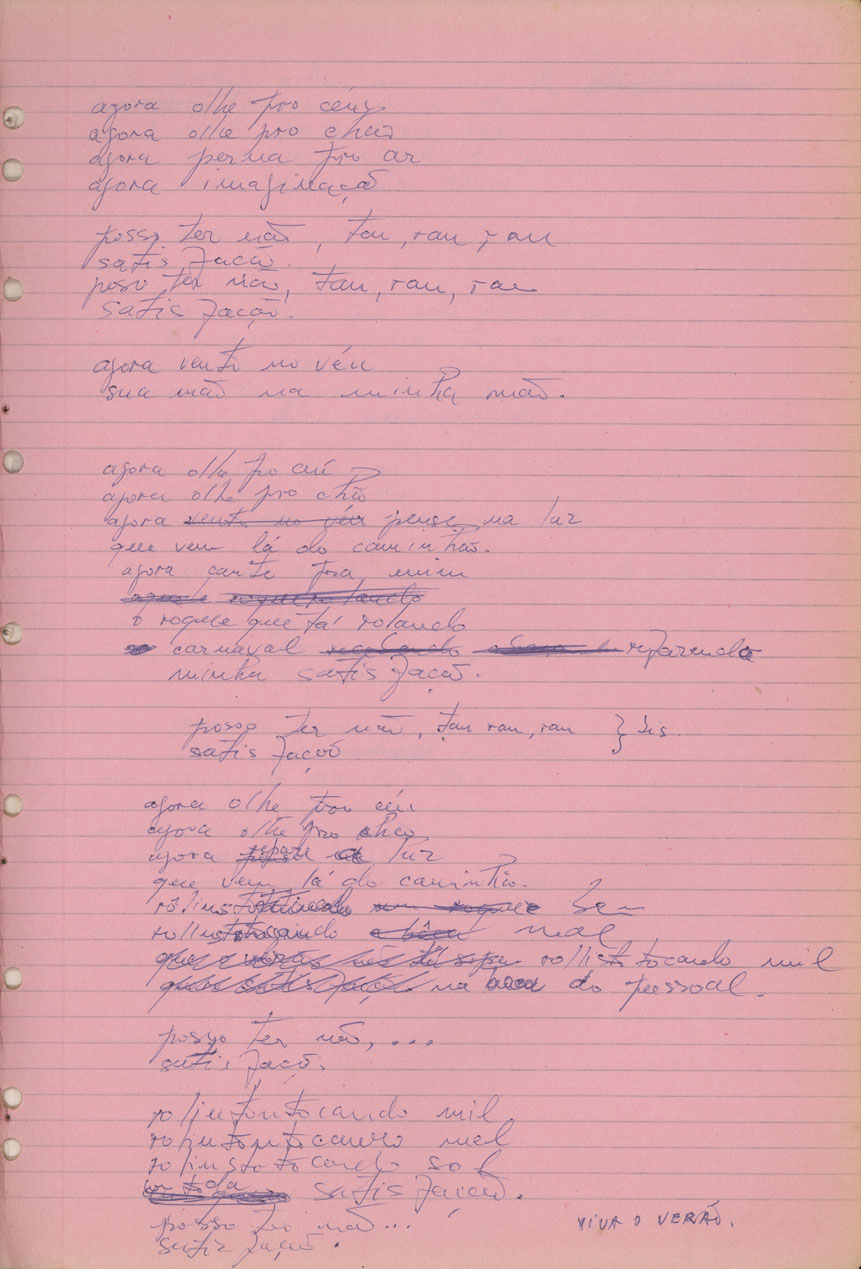 agora olhe pro céu
agora olhe pro chão
agora perna pro ar
agora imaginação
posso ter não, tan, ran, ran
satisfação.
poso ter não, tan, ran, ran
satisfação.
agora vento no véu
sua mão na minha mão.
agora olhe pro céu
agora olhe pro chão
agora vento no véu pense na luz
que vem lá do caminhão.
agora cante pra mim
o roque que tá rolando
carnaval refazendo
minha satisfação.
posso ter não, tan ran, ran } bis
satisfação
agora olhe pro céu
agora olhe pro chão
agora repare a luz
que vem lá do caminhão.
bem
mel
tocando mil
na do pessoal.
posso ter não, ...
satisfação.
tocando mil
mel
tocando sol
toda satisfação.
posso ter não...
satisfação.
VIVA O VERÃO.